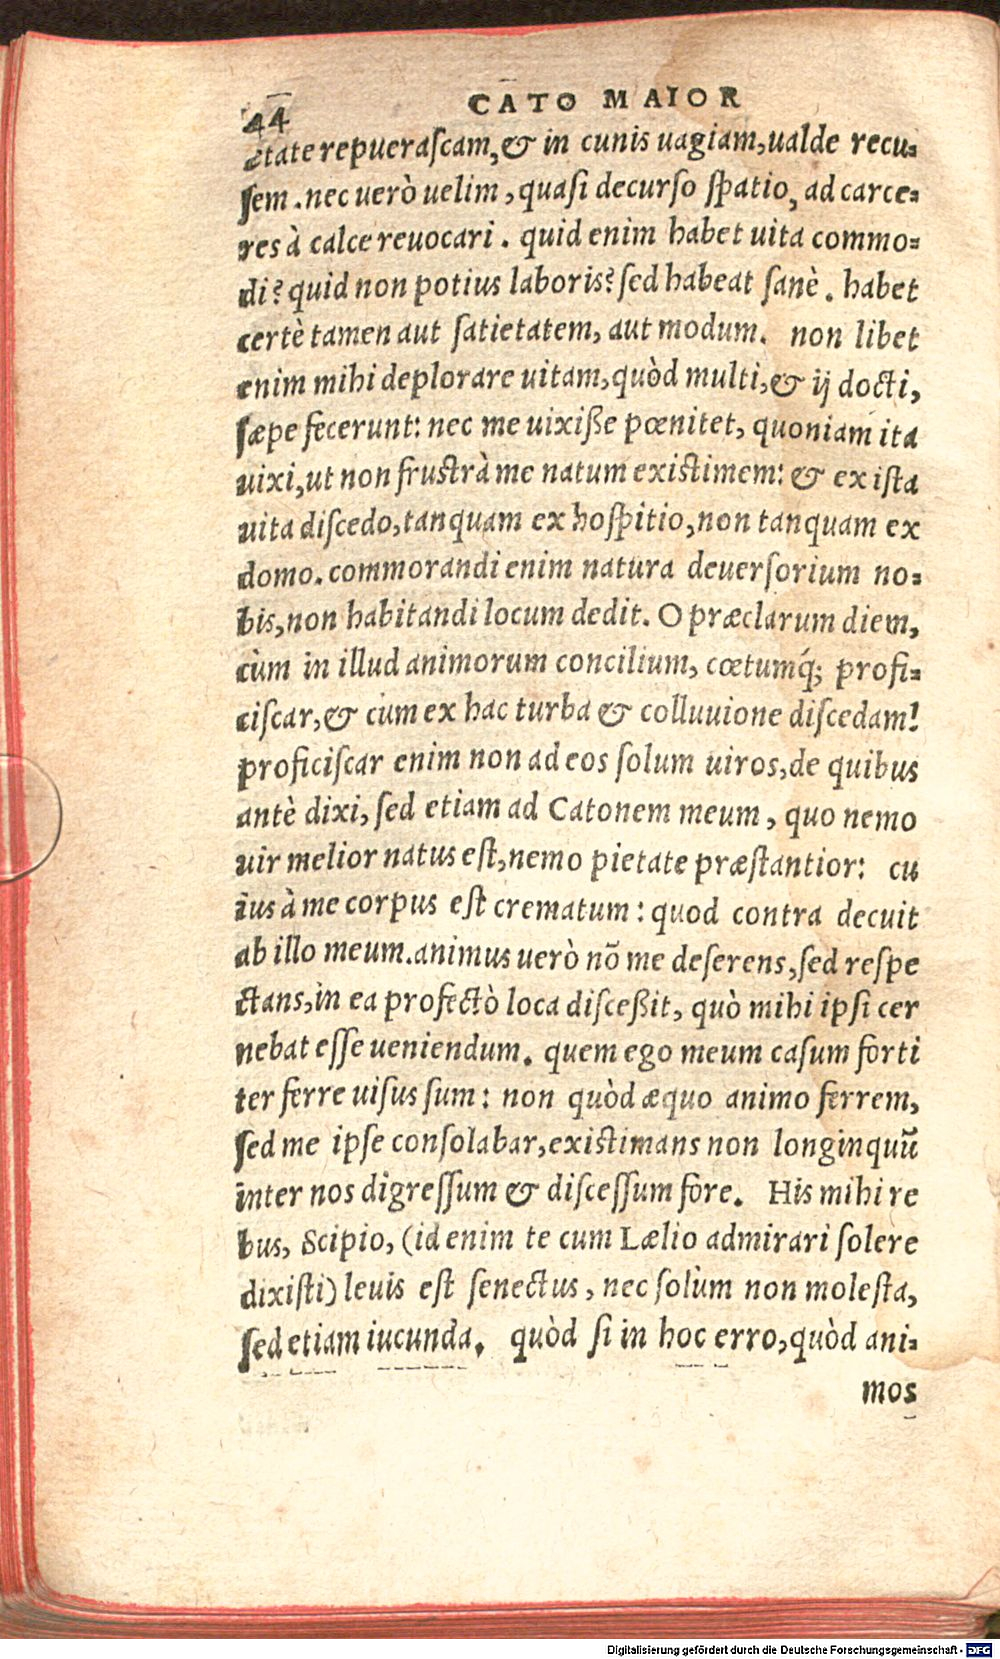 44
CATO MAIOR
ętate repueraſcam, & in cunis uagiam, ualde recu-
ſem. nec uerò uelim, quaſi decurſo ſpatio, ad carce-
res à calce reuocari. quid enim habet uita commo-
di? quid non potius laboris? ſed habeat ſanè. habet
certè tamen aut ſatietatem, aut modum. non libet
enim mihi deplorare uitam, quòd multi, & ij docti,
ſæpe fecerunt: nec me uixiſſe pœnitet, quoniam ita
uixi, ut non fruſtrà me natum exiſtimem: & ex iſta
uita diſcedo, tanquam ex hoſpitio, non tanquam ex
domo. commorandi enim natura deuerſorium no-
bis, non habitandi locum dedit. O præclarum diem,
cùm in illud animorum concilium, cœtumq́; profi-
ciſcar, & cùm ex hac turba & colluuione diſcedam!
proficiſcar enim non ad eos ſolum uiros, de quibus
antè dixi, ſed etiam ad Catonem meum, quo nemo
uir melior natus eſt, nemo pietate præſtantior: cu
ius à me corpus eſt crematum: quod contra decuit
ab illo meum. animus uerò nō me deſerens, ſed reſpe
ctans, in ea profectò loca diſceſſit, quò mihi ipſi cer
nebat eſſe ueniendum. quem ego meum caſum forti
ter ferre uiſus ſum: non quòd æquo animo ferrem,
ſed me ipſe conſolabar, exiſtimans non longinquū
inter nos digreſſum & diſceſſum fore. His mihi re
bus, Scipio, (id enim te cum Lælio admirari ſolere
dixiſti) leuis eſt ſenectus, nec ſolùm non moleſta,
ſed etiam iucunda. quòd ſi in hoc erro, quòd ani-
mos
Digitalisierung gefördert durch die Deutsche Forschungsgemeinschaft - DFG